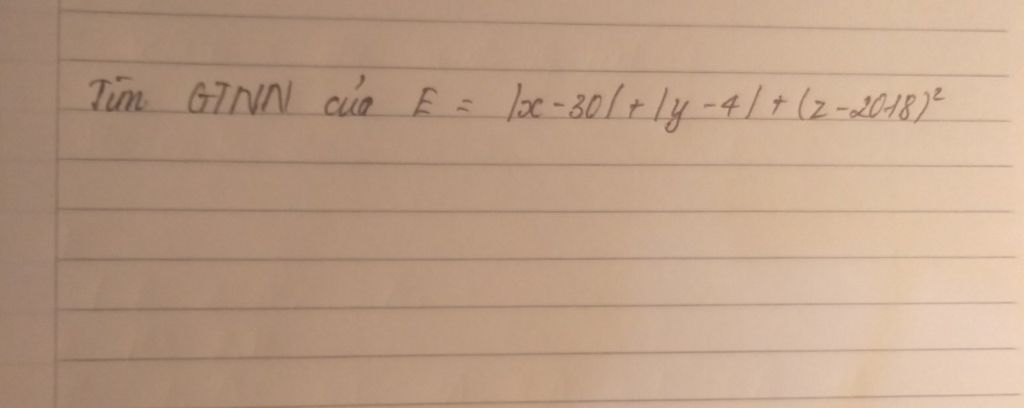 Tìm GTNN của E = |x - 30| + |y - 4| + (z - 2018)²